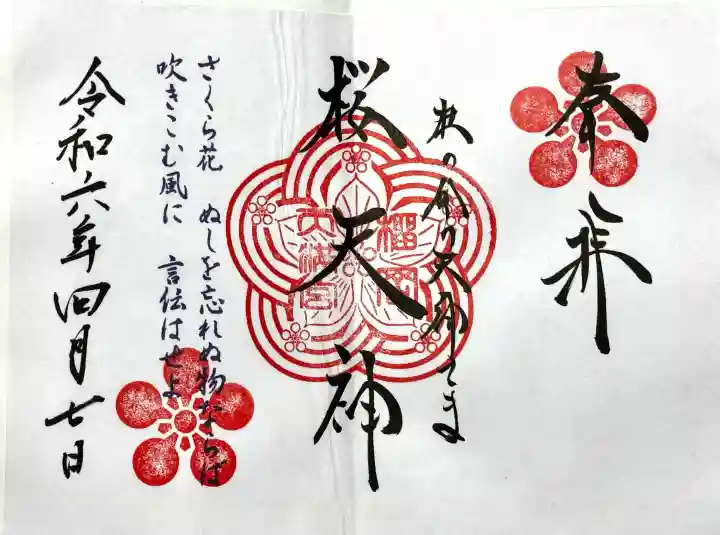 奉拝
杜の の天神さま
桜天神
榴岡
天満宮
さくら花 ぬしを忘れぬ物ならば
吹きこむ風に 言伝はせよ
令和六年四月七日